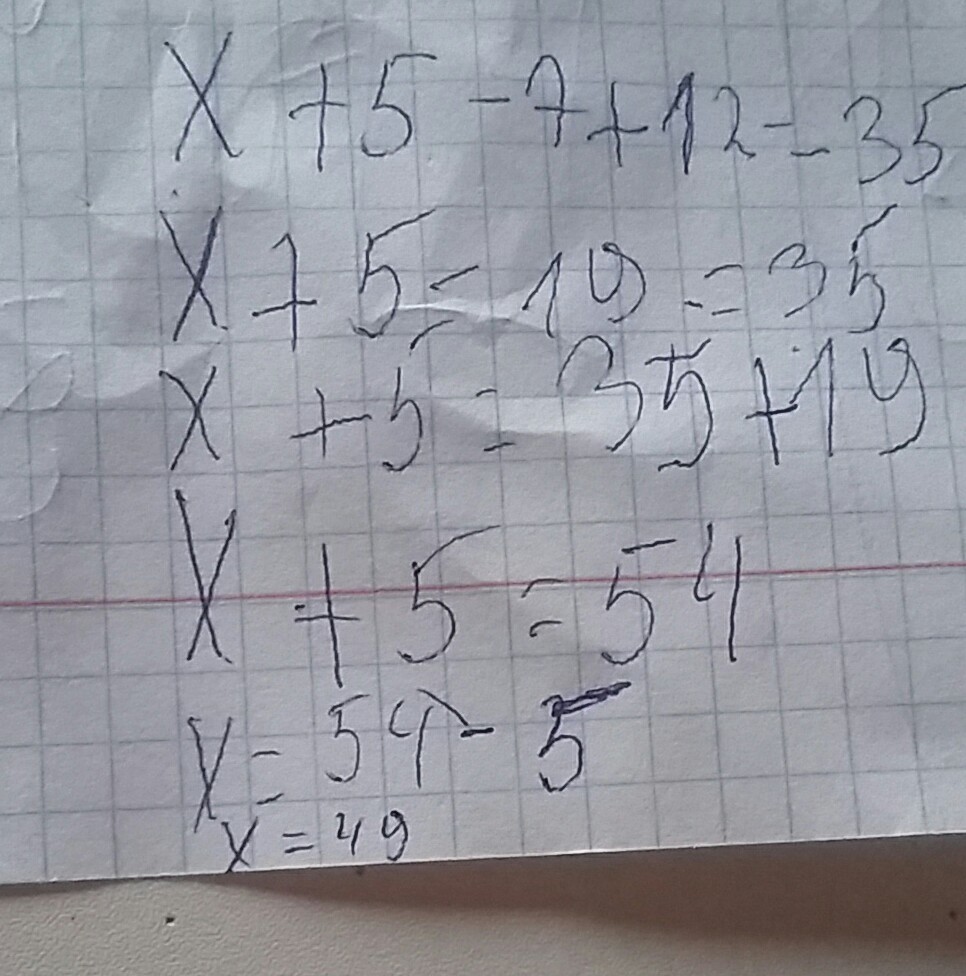 X + 5 - 7 + 12 = 35
X + 5 - 19 = 35
X + 5 = 35 + 19
X + 5 = 54
X = 54 - 5
X = 49